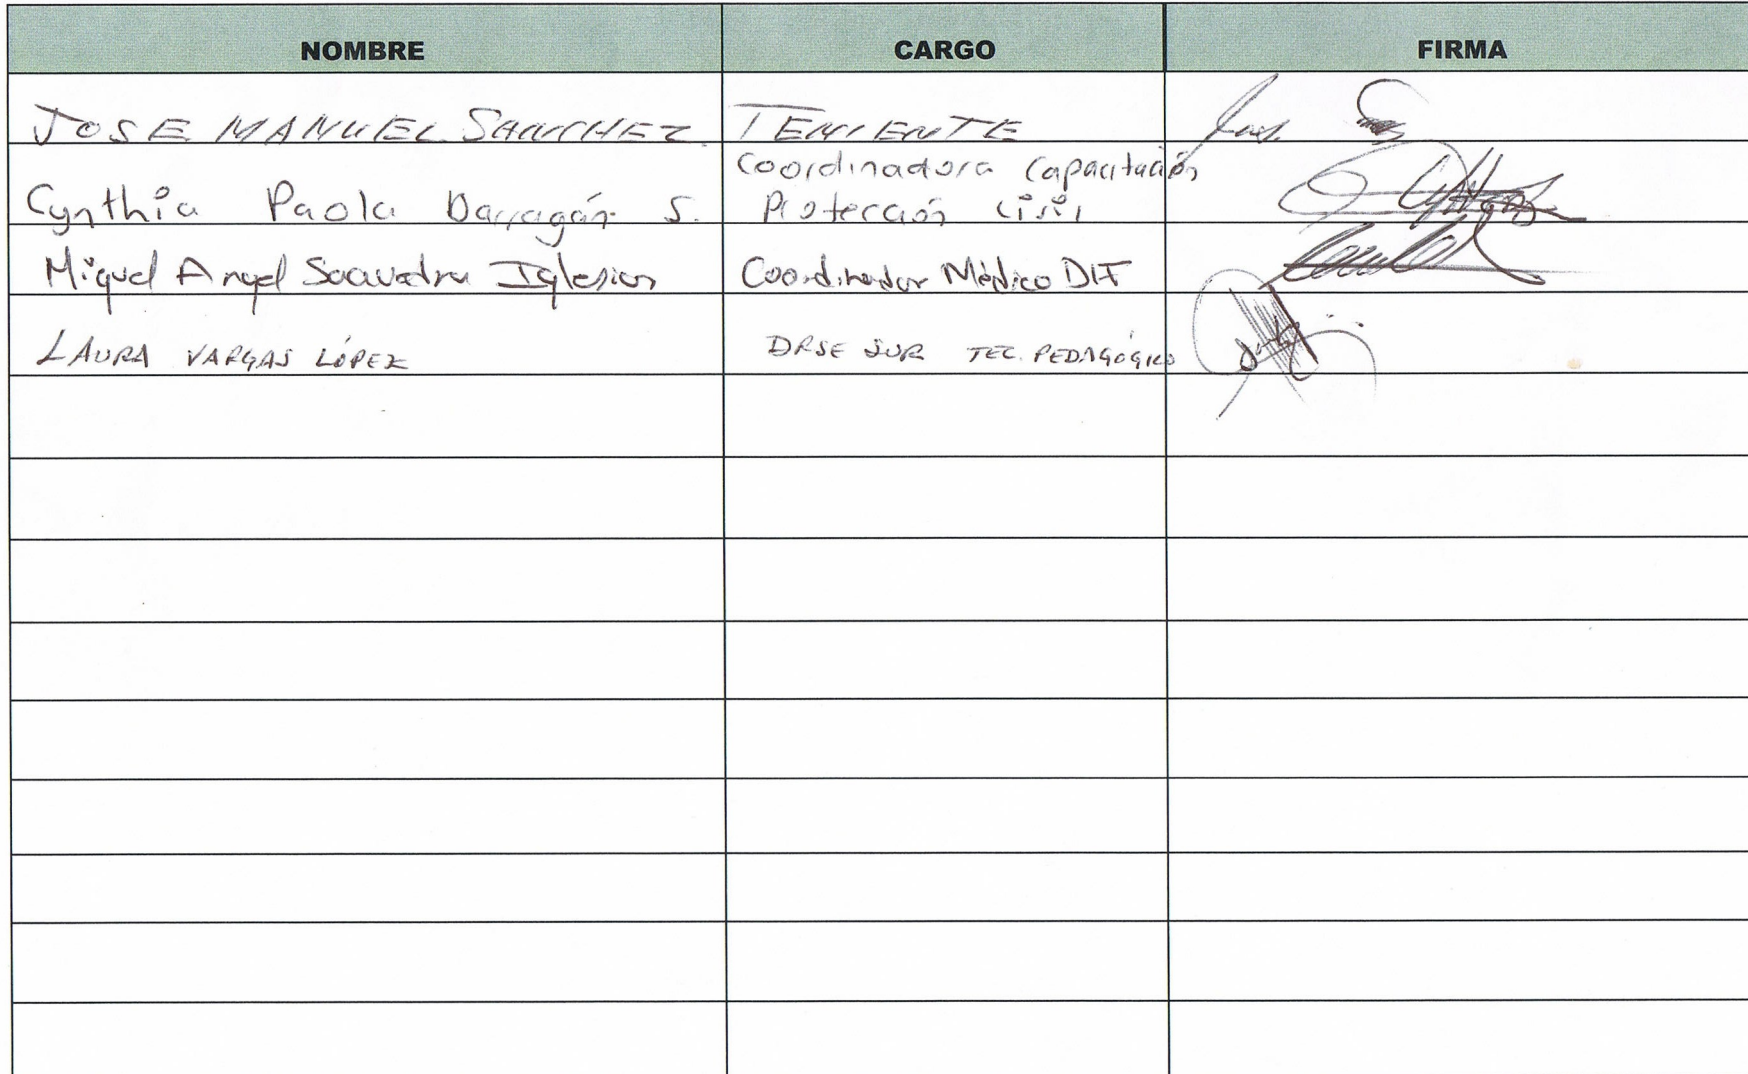 NOMBRE CARGO FIRMA
JOSE MANUEL SANCHEZ. TENIENTE
Coordinadora Capacitación
Cynthia Paola Barragán S. Protección Civil
Miguel Angel Saavedra Iglesias Coordinador Médico DIF
LAURA VARGAS LÓPEZ DRSE SUR TEC. PEDAGÓGICO